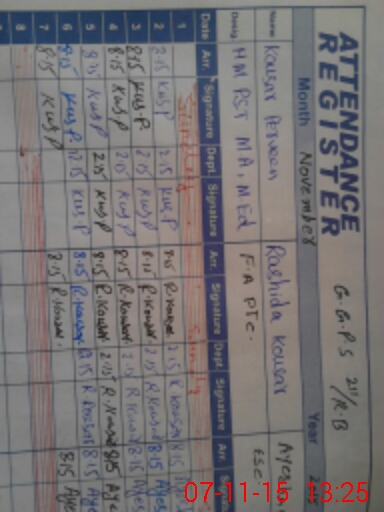 ATTENDANCE
REGISTER
G.G.P.S 211/R.B
Month November Year
Name Kousar Perveen Rashida Kousar
Desig HM PST MA, M.Ed F.A PTC. ESE
Date Arr. Signature Dept. Signature Arr. Signature Dept. Signature Arr.
1 Sunday Sunday
2 8:15 Kus P 2:15 Kus P 8:15 R.Kousar 2:15 R.Kousar 8:15
3 8:15 Kus P 2:15 Kus P 8:15 R.Kousar 2:15 R.Kousar 8:15
4 8:15 Kus P 2:15 Kus P 8:15 R.Kousar 2:15 R.Kousar 8:15
5 8:15 Kus P 2:15 Kus P 8:15 R.Kousar 2:15 R.Kousar 8:15
6 8:15 Kus P 12:15 Kus P 8:15 R.Kousar 12:15 R.Kousar 8:15
7 8:15 Kus P 8:15 R.Kousar 8:15
8
07-11-15 13:25